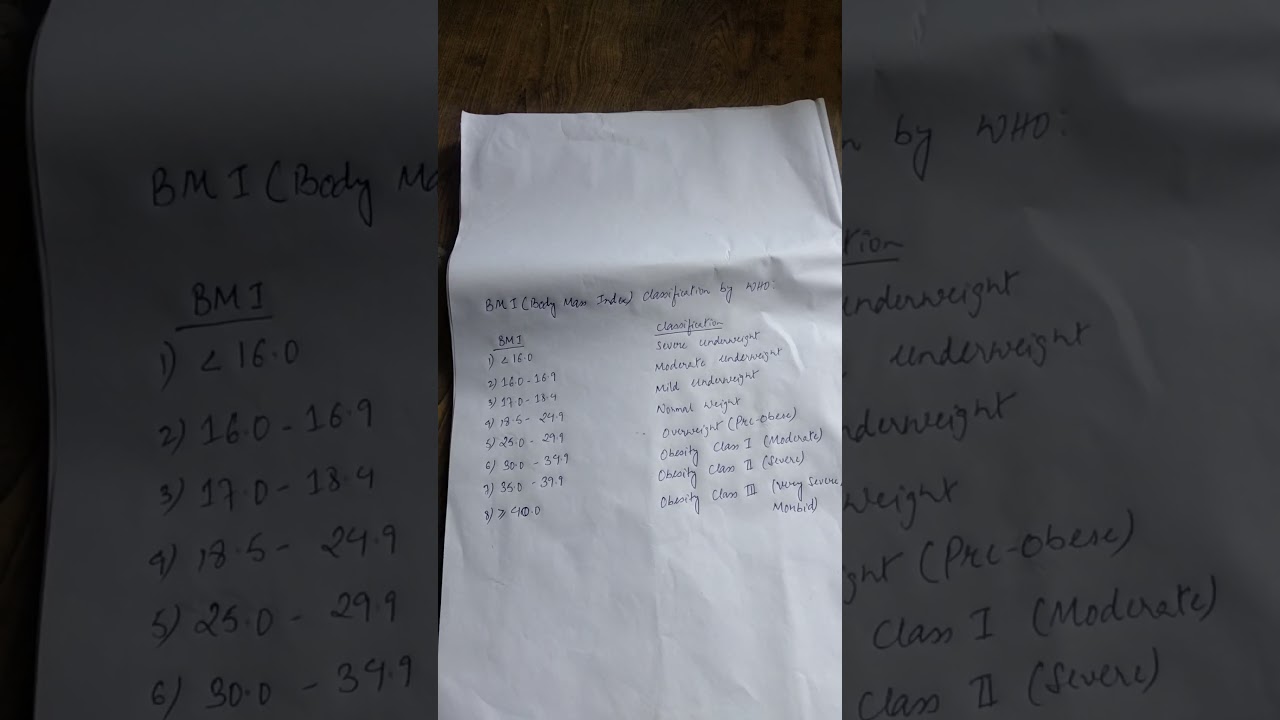 BMI (Body Mass Index) Classification by WHO:
BMI Classification
1) < 16.0 Severe Underweight
2) 16.0 - 16.9 Moderate Underweight
3) 17.0 - 18.4 Mild Underweight
4) 18.5 - 24.9 Normal Weight
5) 25.0 - 29.9 Overweight (Pre-Obese)
6) 30.0 - 34.9 Obesity Class I (Moderate)
7) 35.0 - 39.9 Obesity Class II (Severe)
8) ≥ 40.0 Obesity Class III (Very Severe,
Morbid)